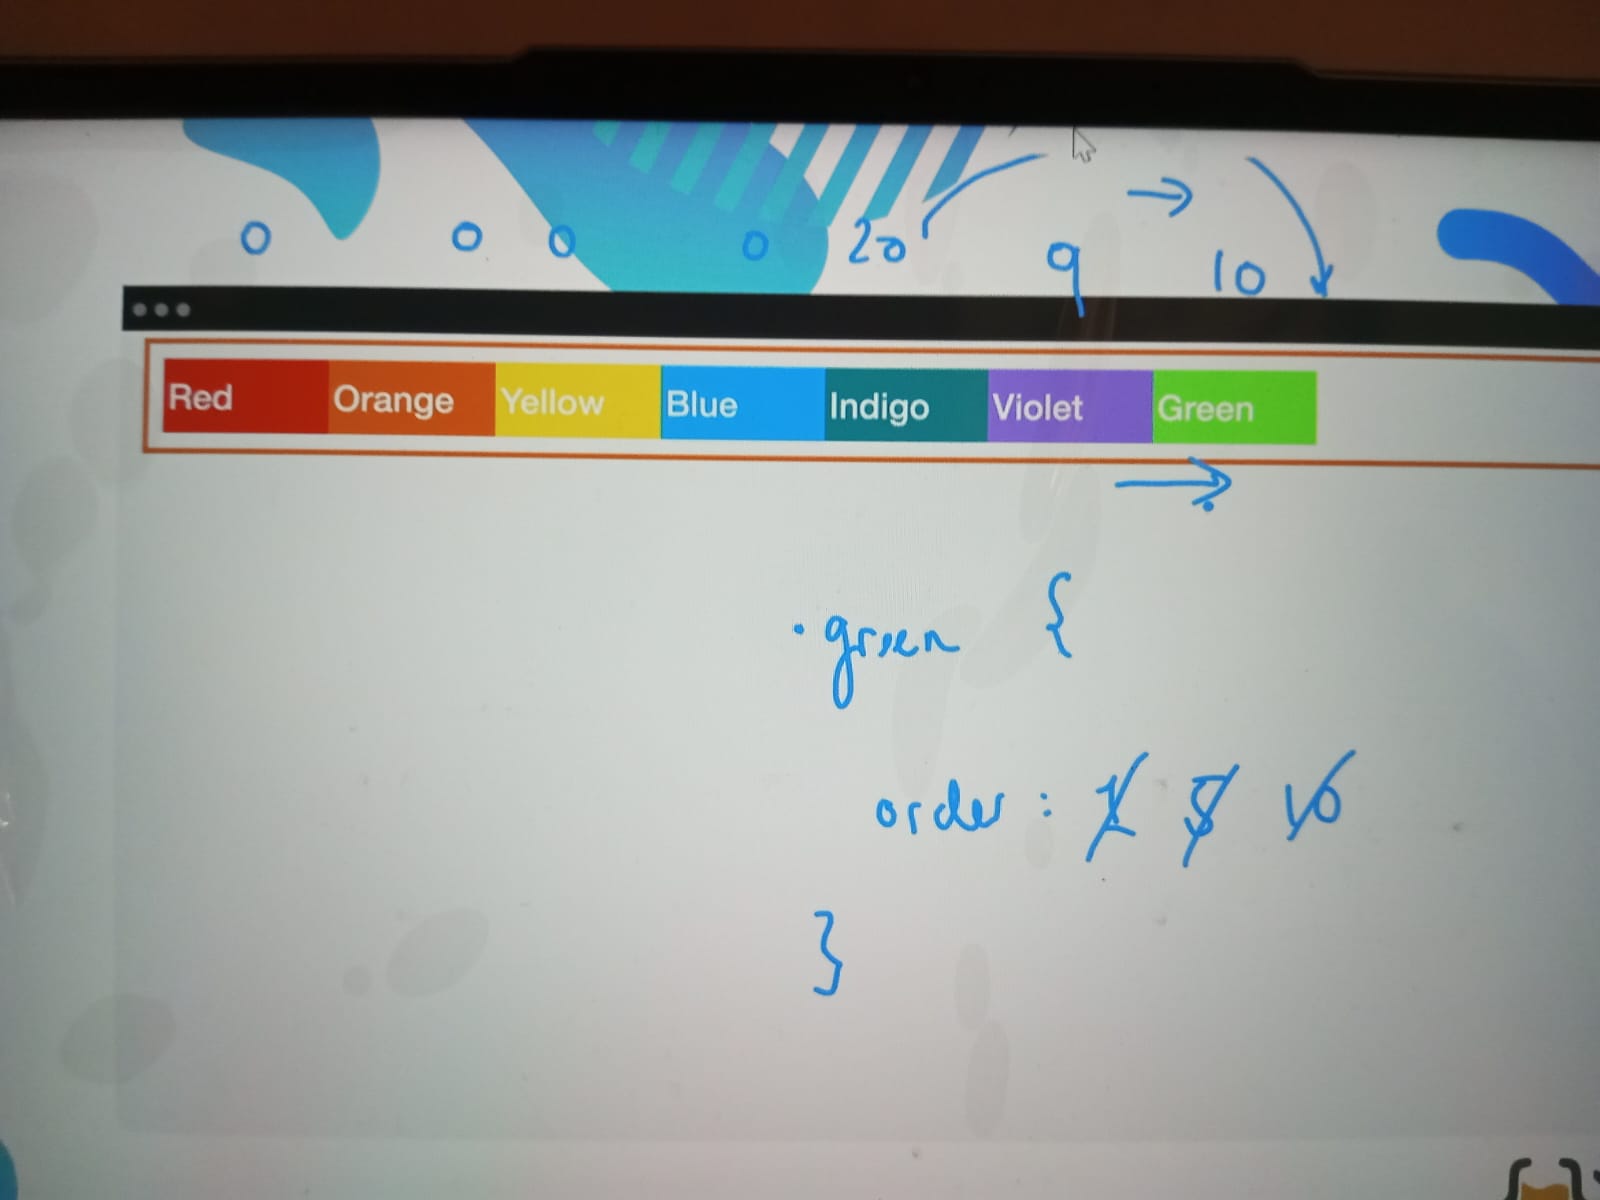 0 0 0 0 20 9 → 10
Red Orange Yellow Blue Indigo Violet Green
→
.green {
order: 1 5 10
}